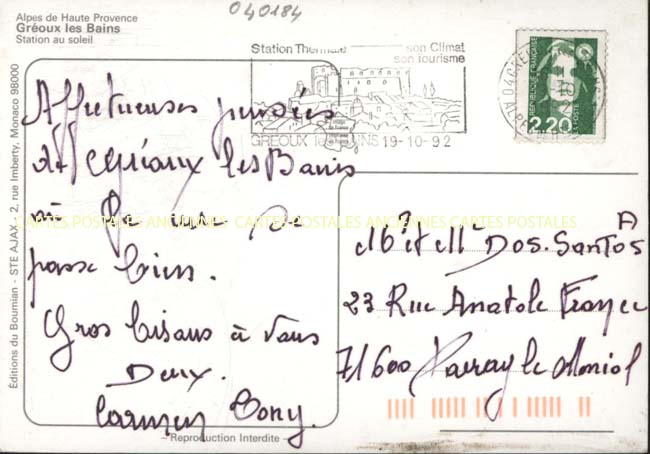 040184
Alpes de Haute Provence
Gréoux les Bains
Station au soleil
Station Thermale son Climat
son tourisme
GREOUX les BAINS 19-10-92
REPUBLIQUE FRANÇAISE
2,20
LA POSTE
Éditions du Boumian - STE AJAX - 2, rue Imberty, Monaco 98000
Affectueuses pensées
de Gréoux les Bains
où la cure se
passe bien.
Gros bisous à vous
Deux.
Carmen Tony.
CARTES POSTALES ANCIENNES CARTES POSTALES ANCIENNES CARTES POSTALES
A
Mr et Me Dos. Santos
23 Rue Anatole France
71600 Paray le Monial
- Reproduction Interdite -